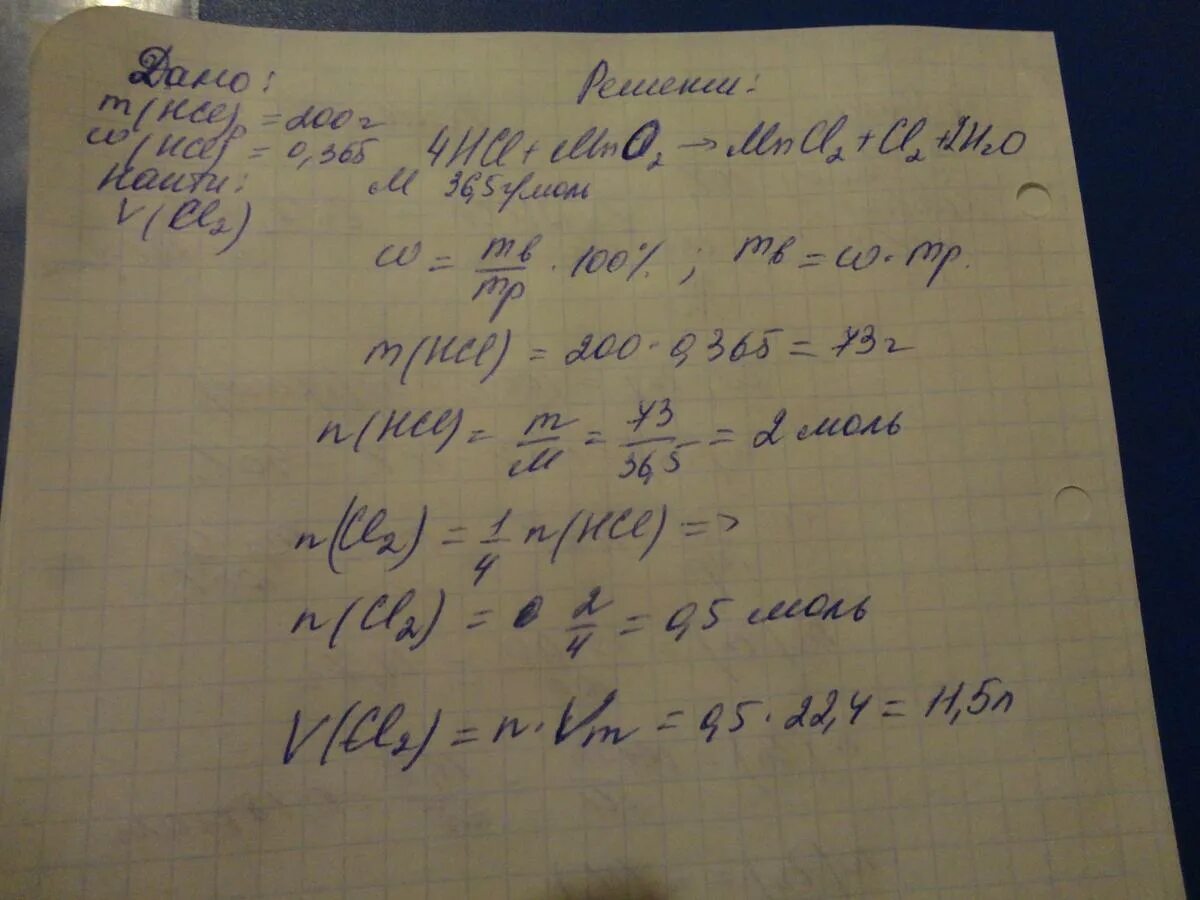 Дано:
m(HCl)р = 200г
ω(HCl) = 0,365
Найти:
V(Cl₂)
Решение:
4HCl + MnO₂ → MnCl₂ + Cl₂ + 2H₂O
M 36,5г/моль
ω = mв/mр · 100% ; mв = ω · mр.
m(HCl) = 200 · 0,365 = 73г
n(HCl) = m/M = 73/36,5 = 2 моль
n(Cl₂) = 1/4 n(HCl) =>
n(Cl₂) = 2/4 = 0,5 моль
V(Cl₂) = n · Vm = 0,5 · 22,4 = 11,5л